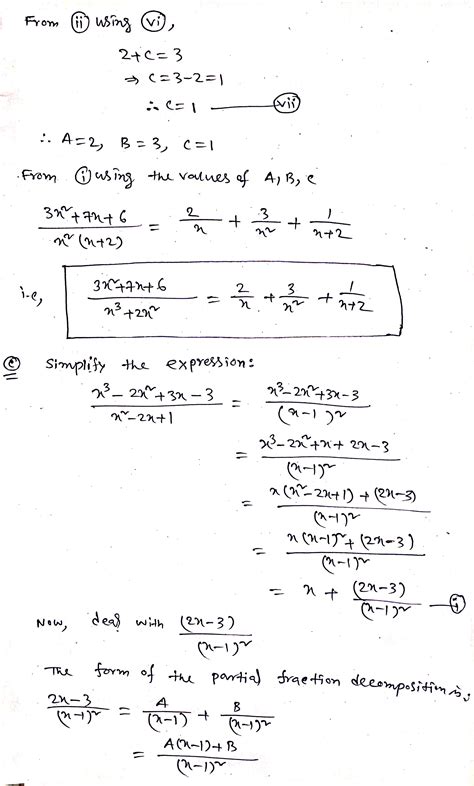 From (ii) using (vi),
2+C=3
⇒ C=3-2=1
∴ C=1 —— (vii)
∴ A=2, B=3, C=1
From (i) using the values of A, B, C
(3x²+7x+6)/(x²(x+2)) = 2/x + 3/x² + 1/(x+2)
i.e, (3x²+7x+6)/(x³+2x²) = 2/x + 3/x² + 1/(x+2)
(c) Simplify the expression:
(x³-2x²+3x-3)/(x²-2x+1) = (x³-2x²+3x-3)/(x-1)²
= (x³-2x²+x+2x-3)/(x-1)²
= (x(x²-2x+1)+(2x-3))/(x-1)²
= (x(x-1)²+(2x-3))/(x-1)²
= x + (2x-3)/(x-1)² —— (i)
Now, deal with (2x-3)/(x-1)²
The form of the partial fraction decomposition is:
(2x-3)/(x-1)² = A/(x-1) + B/(x-1)²
= (A(x-1)+B)/(x-1)²